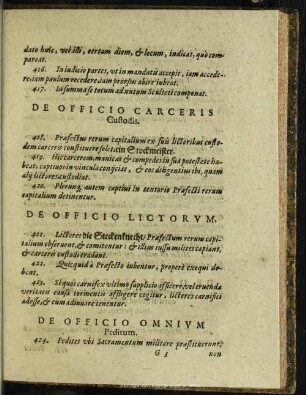 dato huic, vel illi, certam diem, & locum, indicat, quò com-
pareat.
416. In iudicio partes, vt in mandatis accepit, iam accede-
re, iam paulum recedere, iam prorsus abire iubeat.
417. In summa se totum ad nutum Sculteti componat.
DE OFFICIO CARCERIS
Custodis.
418. Præfectus rerum capitalium ex suis lictoribus custo-
dem carceris constituere solet, ein Stockmeister.
419. Hic carcerem, manicas & compedes in sua potestate ha-
beat, captivos in vincula conjiciat, & eos diligenter ibi, quam
alij lictores custodiat.
420. Plerunq; autem captivi in tentorio Præfecti rerum
capitalium detinentur.
DE OFFICIO LICTORVM.
421. Lictores die Steckenknecht / Præfectum rerum capi-
talium observent, & comitentur: & illius iussu milites capiant,
& carceris custodi tradant.
422. Quicquid à Præfecto iubentur, properè exequi de-
bent.
423. Si quos carnifex vltimo supplicio afficere, vel eruendæ
veritatis causa tormentis affligere cogitur, lictores carnifici
adesse, & eum adiuvare tenentur.
DE OFFICIO OMNIVM
Peditum.
424. Pedites vbi Sacramentum militare præstiterunt,
G 3 non